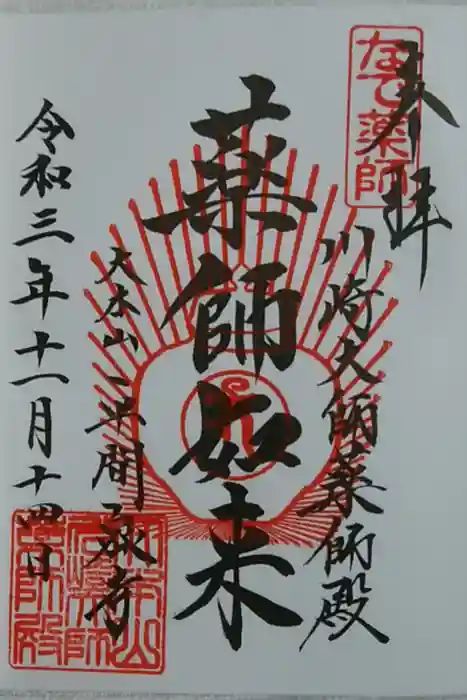 奉拝
なで薬師
川崎大師薬師殿
薬師如来
大本山平間寺
令和三年十一月十四日
大本山
川崎大師
薬師殿